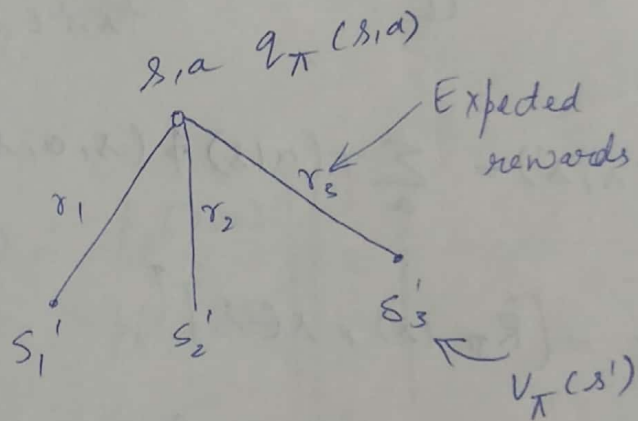 s,a q_π (s,a)
Expected
rewards
r₁
r₂
r₃
S₁'
S₂'
S₃'
V_π (s')